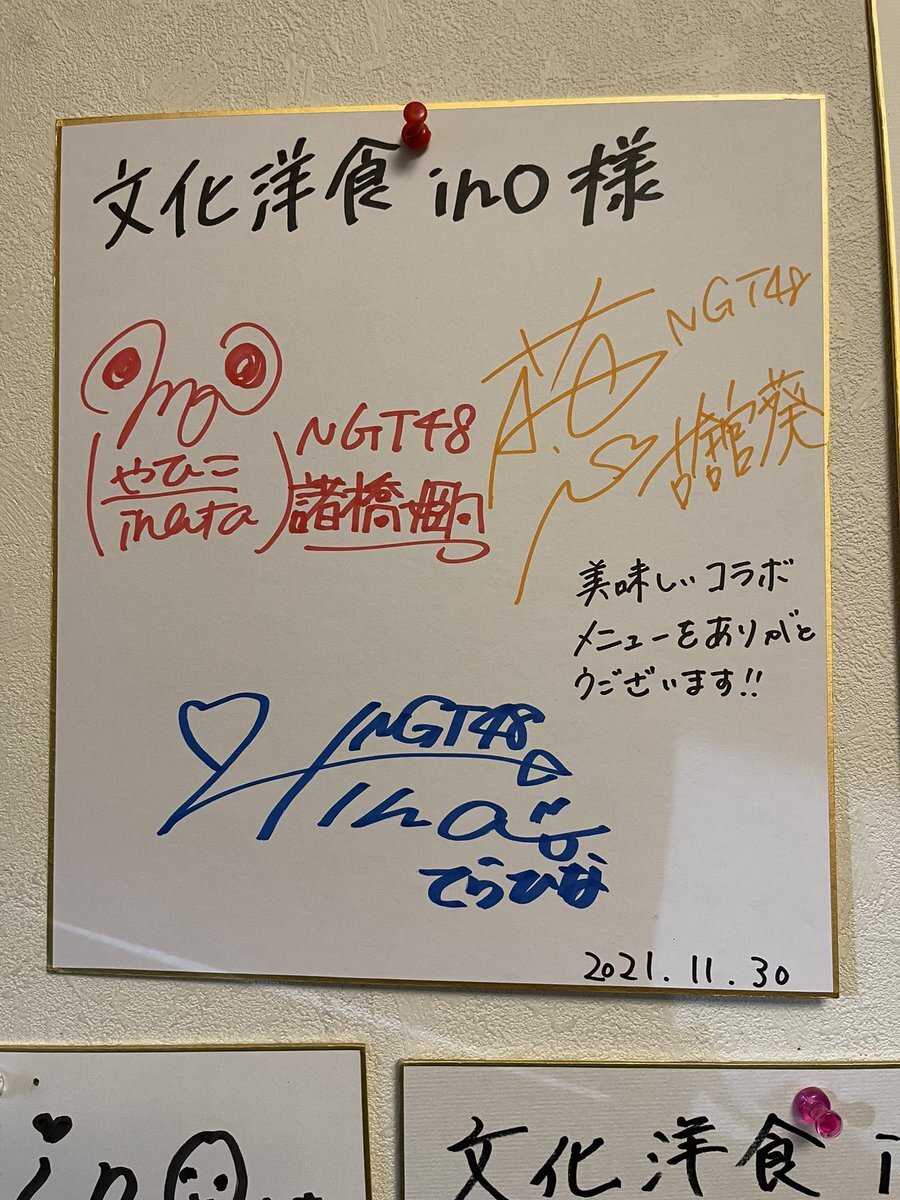 文化洋食 ino 様
NGT48
諸橋姫向
(やひこ
inata)
NGT48
古舘葵
美味しいコラボ
メニューをありがと
うございます!!
NGT48
Hina
てらひな
2021.11.30
ino
文化洋食 i